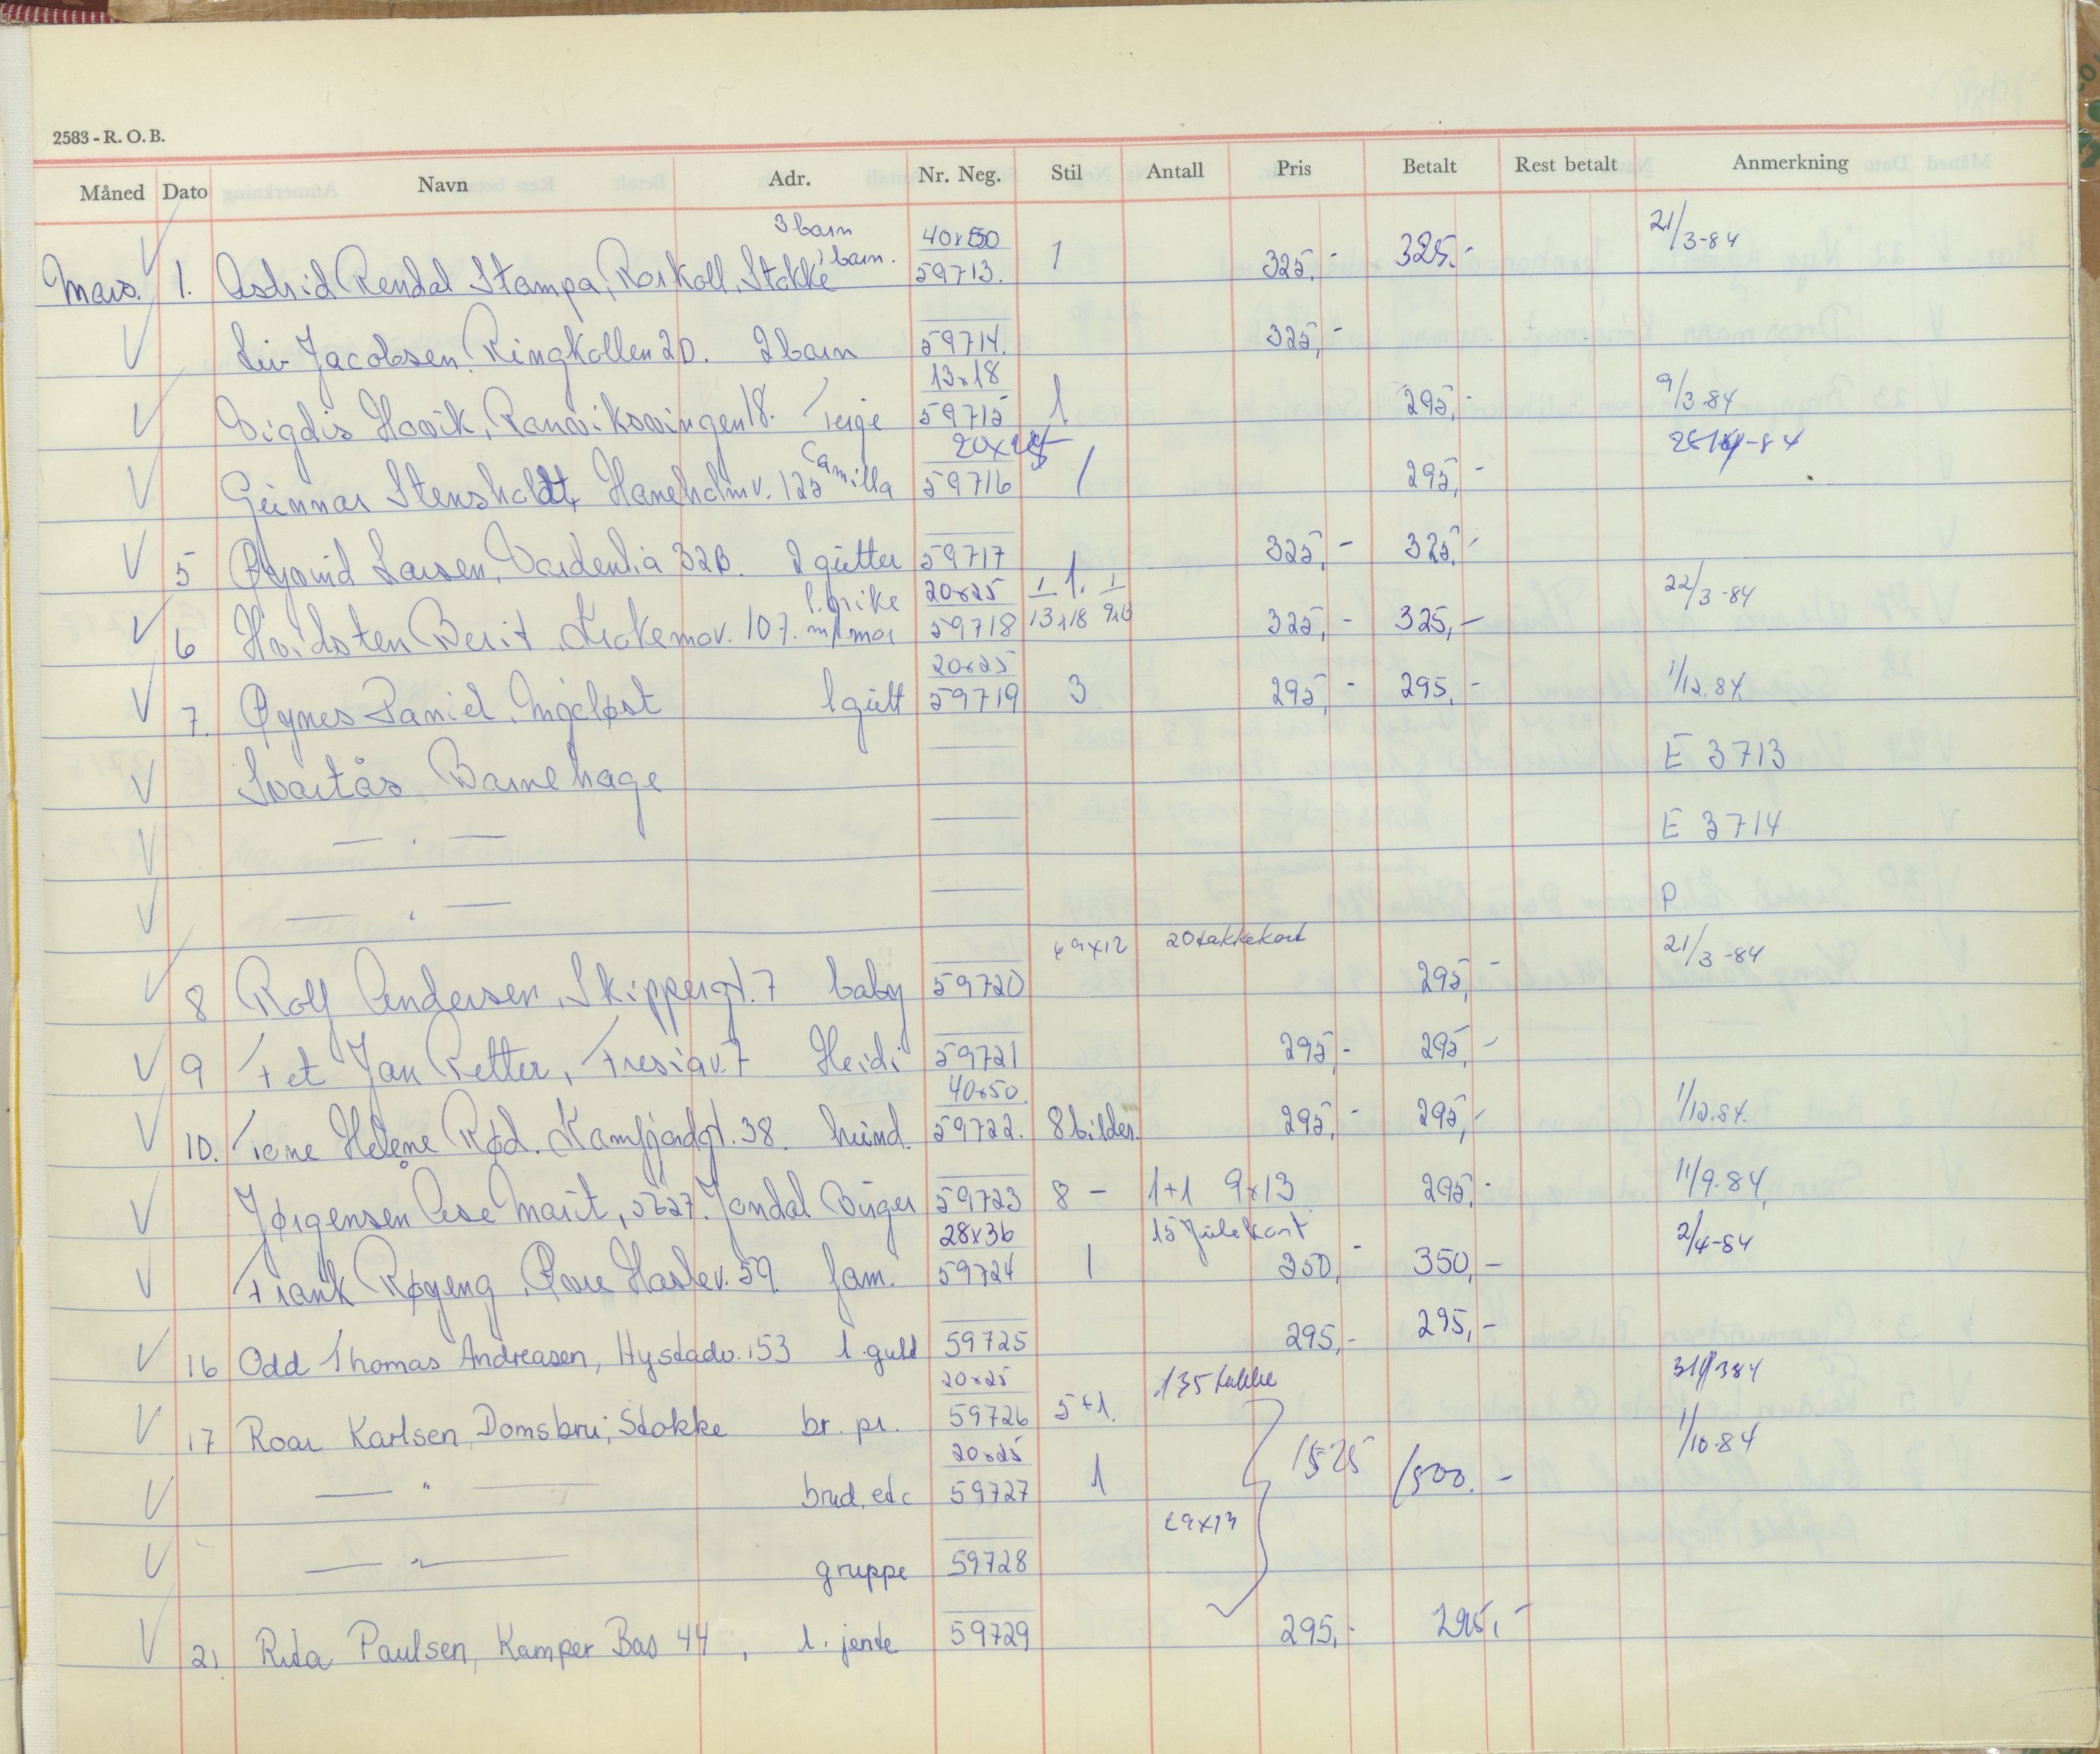 2583 - R. O. B.
Måned Dato Navn Adr. Nr. Neg. Stil Antall Pris Betalt Rest betalt Anmerkning
3 barn 40x50 21/3-84
Mars. 1. Astrid Rendal Stampa, Roskoll, Stokke 1 barn. 59713. 1 325,- 325,-
Liv Jacobsen, Ringkollen 2D. 2 barn 59714. 325,-
13x18 9/3-84
Vigdis Hovik, Ranviksvingen 18. Terje 59715 1 295,-
Camilla 20x25
Gunnar Stensholdt, Haneholmv. 125 59716 1 295,- -84
5 Øyvind Larsen, Vardenlia 32B. 2 gutter 59717 325,- 325,-
20x25 1 1. 1 22/3-84
6 Hvidsten Berit, Krokemov. 107. m/mor 59718 13x18 9x13 325,- 325,-
20x25 1/12.84.
7. Øynes Daniel, 1 gutt 59719 3 295,- 295,-
Svartås Barnehage E 3713
— " — E 3714
— " — P
9x12 20 takkekort 21/3-84
8 Rolf Andersen, Skippergt. 7 baby 59720 295,-
9 Fet Jan Petter, Fresiav. 7 Heidi 59721 295,- 295,-
40x50 1/12.84.
10. Tone Helene Rød, Kamfjordgt. 38. hund. 59722. 8 bilder. 295,- 295,-
Jørgensen Åse Marit, 5627. Jondal Birger 59723 8 - 1+1 9x13 295,- 11/9.84.
28x36 15 Julekort 2/4-84
Frank Røyeng, Øvre Haslev. 59. fam. 59724 1 350,- 350,-
16 Odd Thomas Andreasen, Hystadv. 153 1. gutt 59725 295,- 295,-
20x25 135 takke
17 Roar Karlsen, Domsbru, Stokke br. pr. 59726 5+1. 1/10-84
20x25
— " — brud, etc 59727 1 1525 1500.-
9x13
— " — gruppe 59728
21. Rita Paulsen, Kamper Bas 44, 1. jente 59729 295,- 295,-